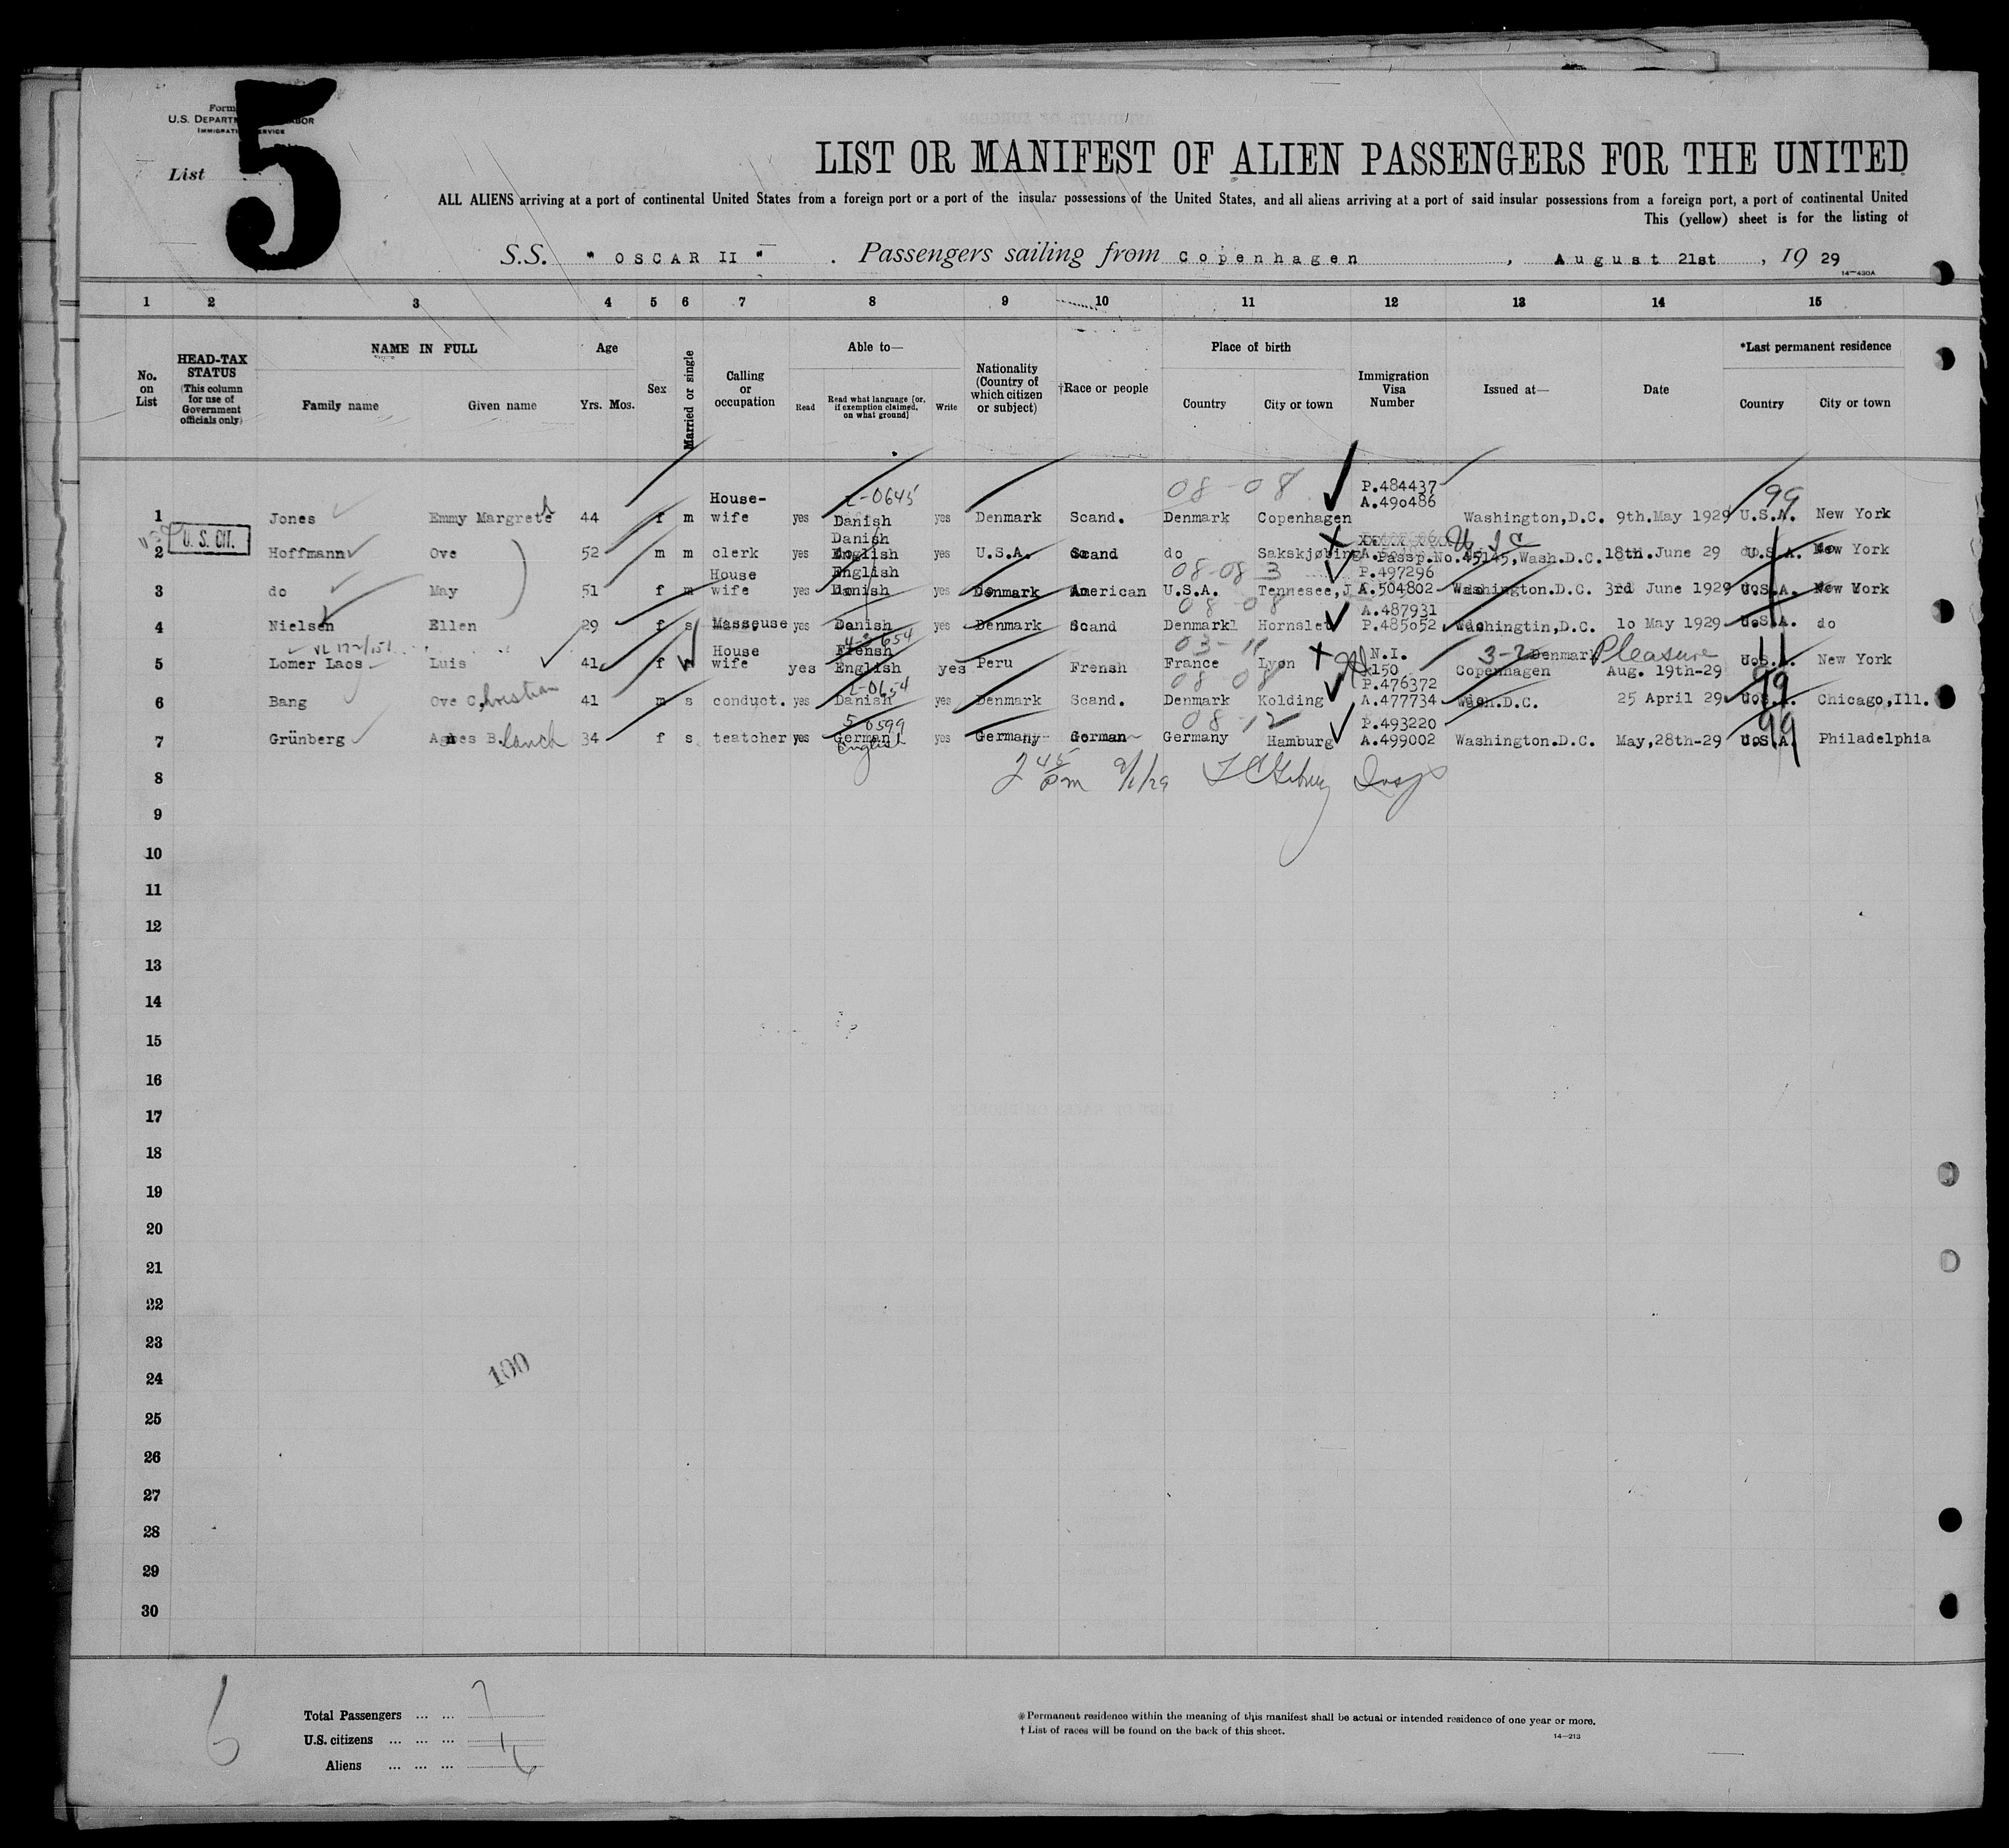 Form
U.S. DEPARTMENT LABOR
IMMIGRATION SERVICE
List 5
LIST OR MANIFEST OF ALIEN PASSENGERS FOR THE UNITED
ALL ALIENS arriving at a port of continental United States from a foreign port or a port of the insular possessions of the United States, and all aliens arriving at a port of said insular possessions from a foreign port, a port of continental United
This (yellow) sheet is for the listing of
S.S. " OSCAR II " . Passengers sailing from Copenhagen , August 21st , 19 29
14—430A
1 2 3 4 5 6 7 8 9 10 11 12 13 14 15
No. on List
HEAD-TAX STATUS (This column for use of Government officials only)
NAME IN FULL
Family name Given name
Age
Yrs. Mos.
Sex
Married or single
Calling or occupation
Able to—
Read Read what language [or, if exemption claimed, on what ground] Write
Nationality (Country of which citizen or subject)
†Race or people
Place of birth
Country City or town
Immigration Visa Number
Issued at—
Date
*Last permanent residence
Country City or town
L-0645 08-08 P.484437 99
House- A.490486
1 Jones Emmy Margreteh 44 f m wife yes Danish yes Denmark Scand. Denmark Copenhagen Washington,D.C. 9th.May 1929 U.S.A. New York
Danish
2 U. S. CIT. Hoffmann Ove 52 m m clerk yes English yes U.S.A. Scand do Sakskjøbing Passp.No.45145,Wash.D.C. 18th.June 29 U.S.A. New York
House English 08-08 3 P.497296
3 do May 51 f m wife yes Danish yes Denmark American U.S.A. Tennesee,J A.504802 Washington.D.C. 3rd June 1929 U.S.A. New York
08 08 A.487931
4 Nielsen Ellen 29 f s Masseuse yes Danish yes Denmark Scand Denmark Hornslet P.485o52 Washingtin,D.C. 1o May 1929 U.S.A. do
House Frensh 03-11 N.I. 3-2 Denmark Pleasure 11
5 Lomer Laos Luis 41 f wife yes English yes Peru Frensh France Lyon 150 Copenhagen Aug. 19th-29 U.S.A. New York
L-0654 08 08 P.476372 99
6 Bang Ove Christian 41 m s conduct. yes Danish yes Denmark Scand. Denmark Kolding A.477734 Wash.D.C. 25 April 29 U.S.A. Chicago,Ill.
5 0599 08-12 P.493220 99
7 Grünberg Agnes B.lanch 34 f s teatcher yes German yes Germany German Germany Hamburg A.499002 Washington.D.C. May,28th-29 U.S.A. Philadelphia
English
8 2 45 pm 9/1/29 Insp
9
10
11
12
13
14
15
16
17
18
19
20
21
22
23
24 100
25
26
27
28
29
30
6
Total Passengers ... ... 7
U.S. citizens ... ... ... 1
Aliens ... ... ... 6
*Permanent residence within the meaning of this manifest shall be actual or intended residence of one year or more.
† List of races will be found on the back of this sheet.
14—213